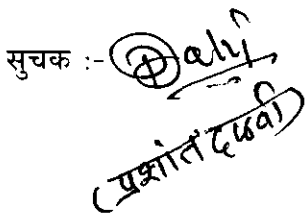 सुचक :-
(प्रशांत दळवी)